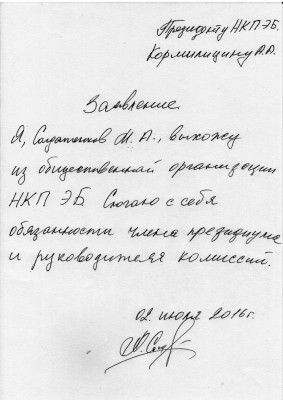 Президенту НКП ЭБ.
Кормилицину А.А.
Заявление
Я, Солдатенков М. А., выхожу
из общественной организации
НКП ЭБ Слогаю с себя
обязанности члена президиума
и руководителя комиссий.
02 июля 2016г.